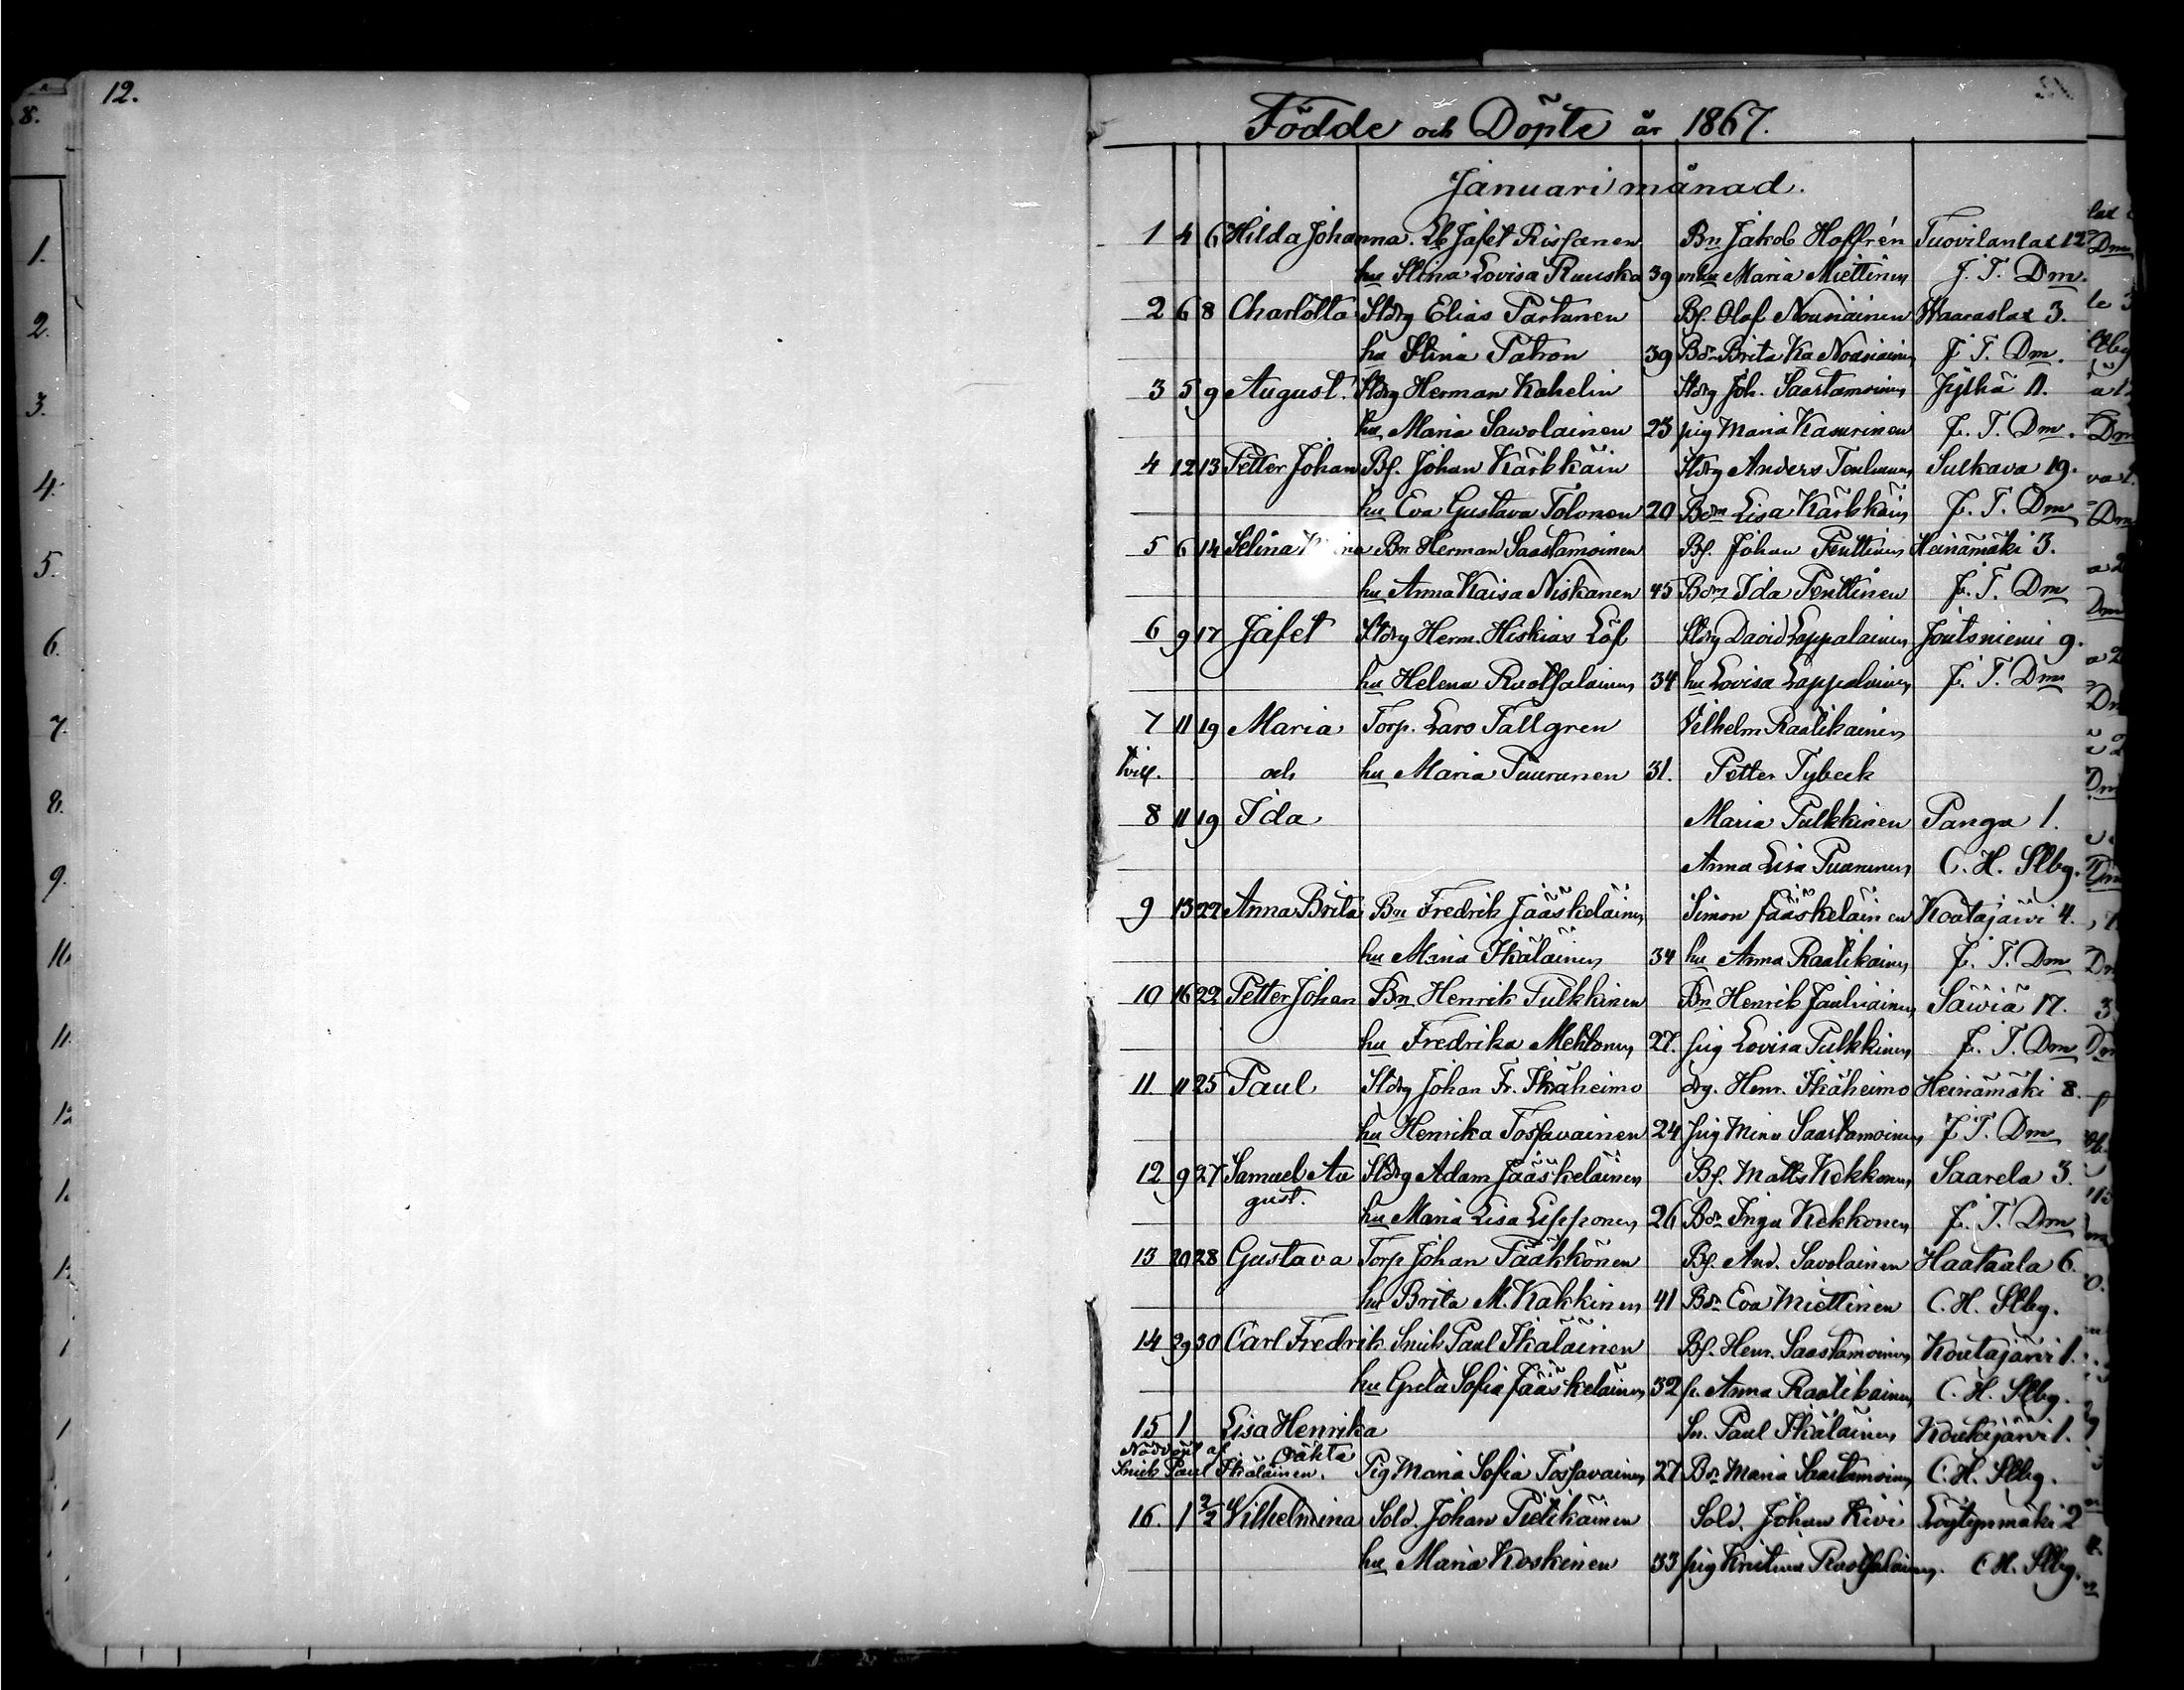 12.
8.
Födde och Döpte år 1867.
Januari månad.
1 4 6 Hilda Johanna. Lb Jafet Rissanen Bn Jakob Hoffrén Tuovilanlax 12
hu Stina Lovisa Ruuska 39 mhu Maria Miettinen J. T. Dm.
2 6 8 Charlotta Stdrg Elias Partanen Bf. Olof Nousiainen Waaraslax 3.
hu Stina Patron 39 Bdr Brita Ka Nousiainen J. T. Dm.
3 5 9 August. Stdrg Herman Kahelin Stdrg Joh. Saastamoinen Jylhä 11.
hu Maria Sawolainen 23 pig Maria Kasurinen J. T. Dm.
4 12 13 Petter Johan Bf. Johan Kärkkäin Stdrg Anders Sulkava 19.
hu Eva Gustava Tolonen 20 Bdm Lisa Kärkkäin J. T. Dm
5 6 14 Selina Bn Herman Saastamoinen Bf. Johan Penttinen Heinämäki 3.
hu Anna Kaisa Niskanen 45 Bdm Ida Penttinen J. T. Dm
6 9 17 Jafet Stdrg Herm. Hiskias Löf Stdrg David Lappalainen Joutsniemi 9.
hu Helena Ruotsalainen 34 hu Lovisa Lappalainen J. T. Dm
7 11 19 Maria Torp. Lars Tallgren Vilhelm Raatikainen
tvill. och hu Maria Tuuranen 31. Petter Tybeck
8 11 19 Ida Maria Pulkkinen Panga 1.
Anna Lisa Puranen C. H. Slbg.
9 13 22 Anna Brita Bn Fredrik Jääskeläinen Simon Jääskeläinen Koutajärvi 4.
hu Maria Ikäläinen 34 hu Anna Raatikainen J. T. Dm
10 16 22 Petter Johan Bn Henrik Pulkkinen Bn Henrik Jauhiainen Säwiä 17.
hu Fredrika Mehtonen 27. pig Lovisa Pulkkinen J. T. Dm
11. 11 25 Paul Stdrg Johan Fr. Ikäheimo drg. Henr. Ikäheimo Heinämäki 8.
hu Henrika Tossavainen 24 pig Mina Saastamoinen J. T. Dm
12 9 27 Samuel Au Stdrg Adam Jääskeläinen Bf. Matts Kekkonen Saarela 3.
gust. hu Maria Lisa Lipponen 26 Bdr Inga Kekkonen J. T. Dm
13 20 28 Gustava Torp Johan Pääkkönen Bf. And. Savolainen Haataala 6.
hu Brita M. Kakkinen 41 Bdr Eva Miettinen C. H. Slbg.
14 29 30 Carl Fredrik Snick Paul Ikäläinen Bf. Henr. Saastamoinen Koutajärvi 1.
hu Greta Sofia Jääskeläinen 32 p. Anna Raatikainen C. H. Slbg.
15 1 Lisa Henrika Sn. Paul Ikäläinen Koutajärvi 1.
Nöddöpt af oäkta
Snick Paul Ikäläinen. Pig Maria Sofia Tossavainen 27 Bdr Maria Saastamoinen C. H. Slbg.
16. 1 2/2 Vilhelmina Sold. Johan Pietikäinen Sold. Johan Kivi Löytynmäki 2
hu Maria Koskinen 33 pig Kristina Ruotsalainen. C. H. Slbg.
1.
2.
3.
4.
5.
6.
7.
8.
9.